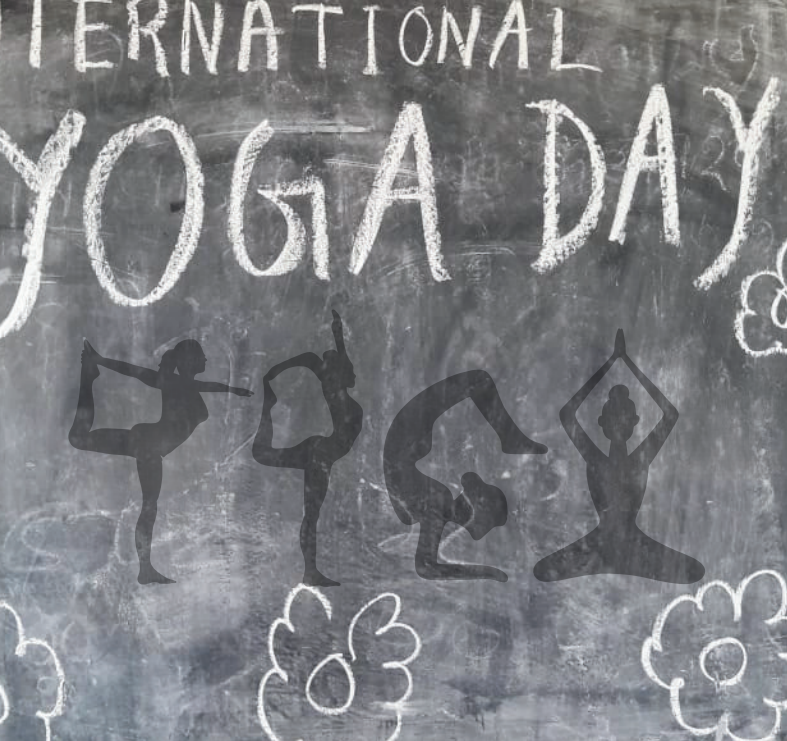 TERNATIONAL
YOGA DAY